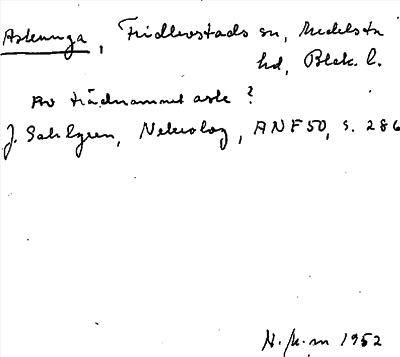 Askunga, Fridlevstads sn, Medelsta
hd, Blek. l.
Av trädnamnet aske?
J. Sahlgren, Nekrolog, ANF 50, s. 286
1952